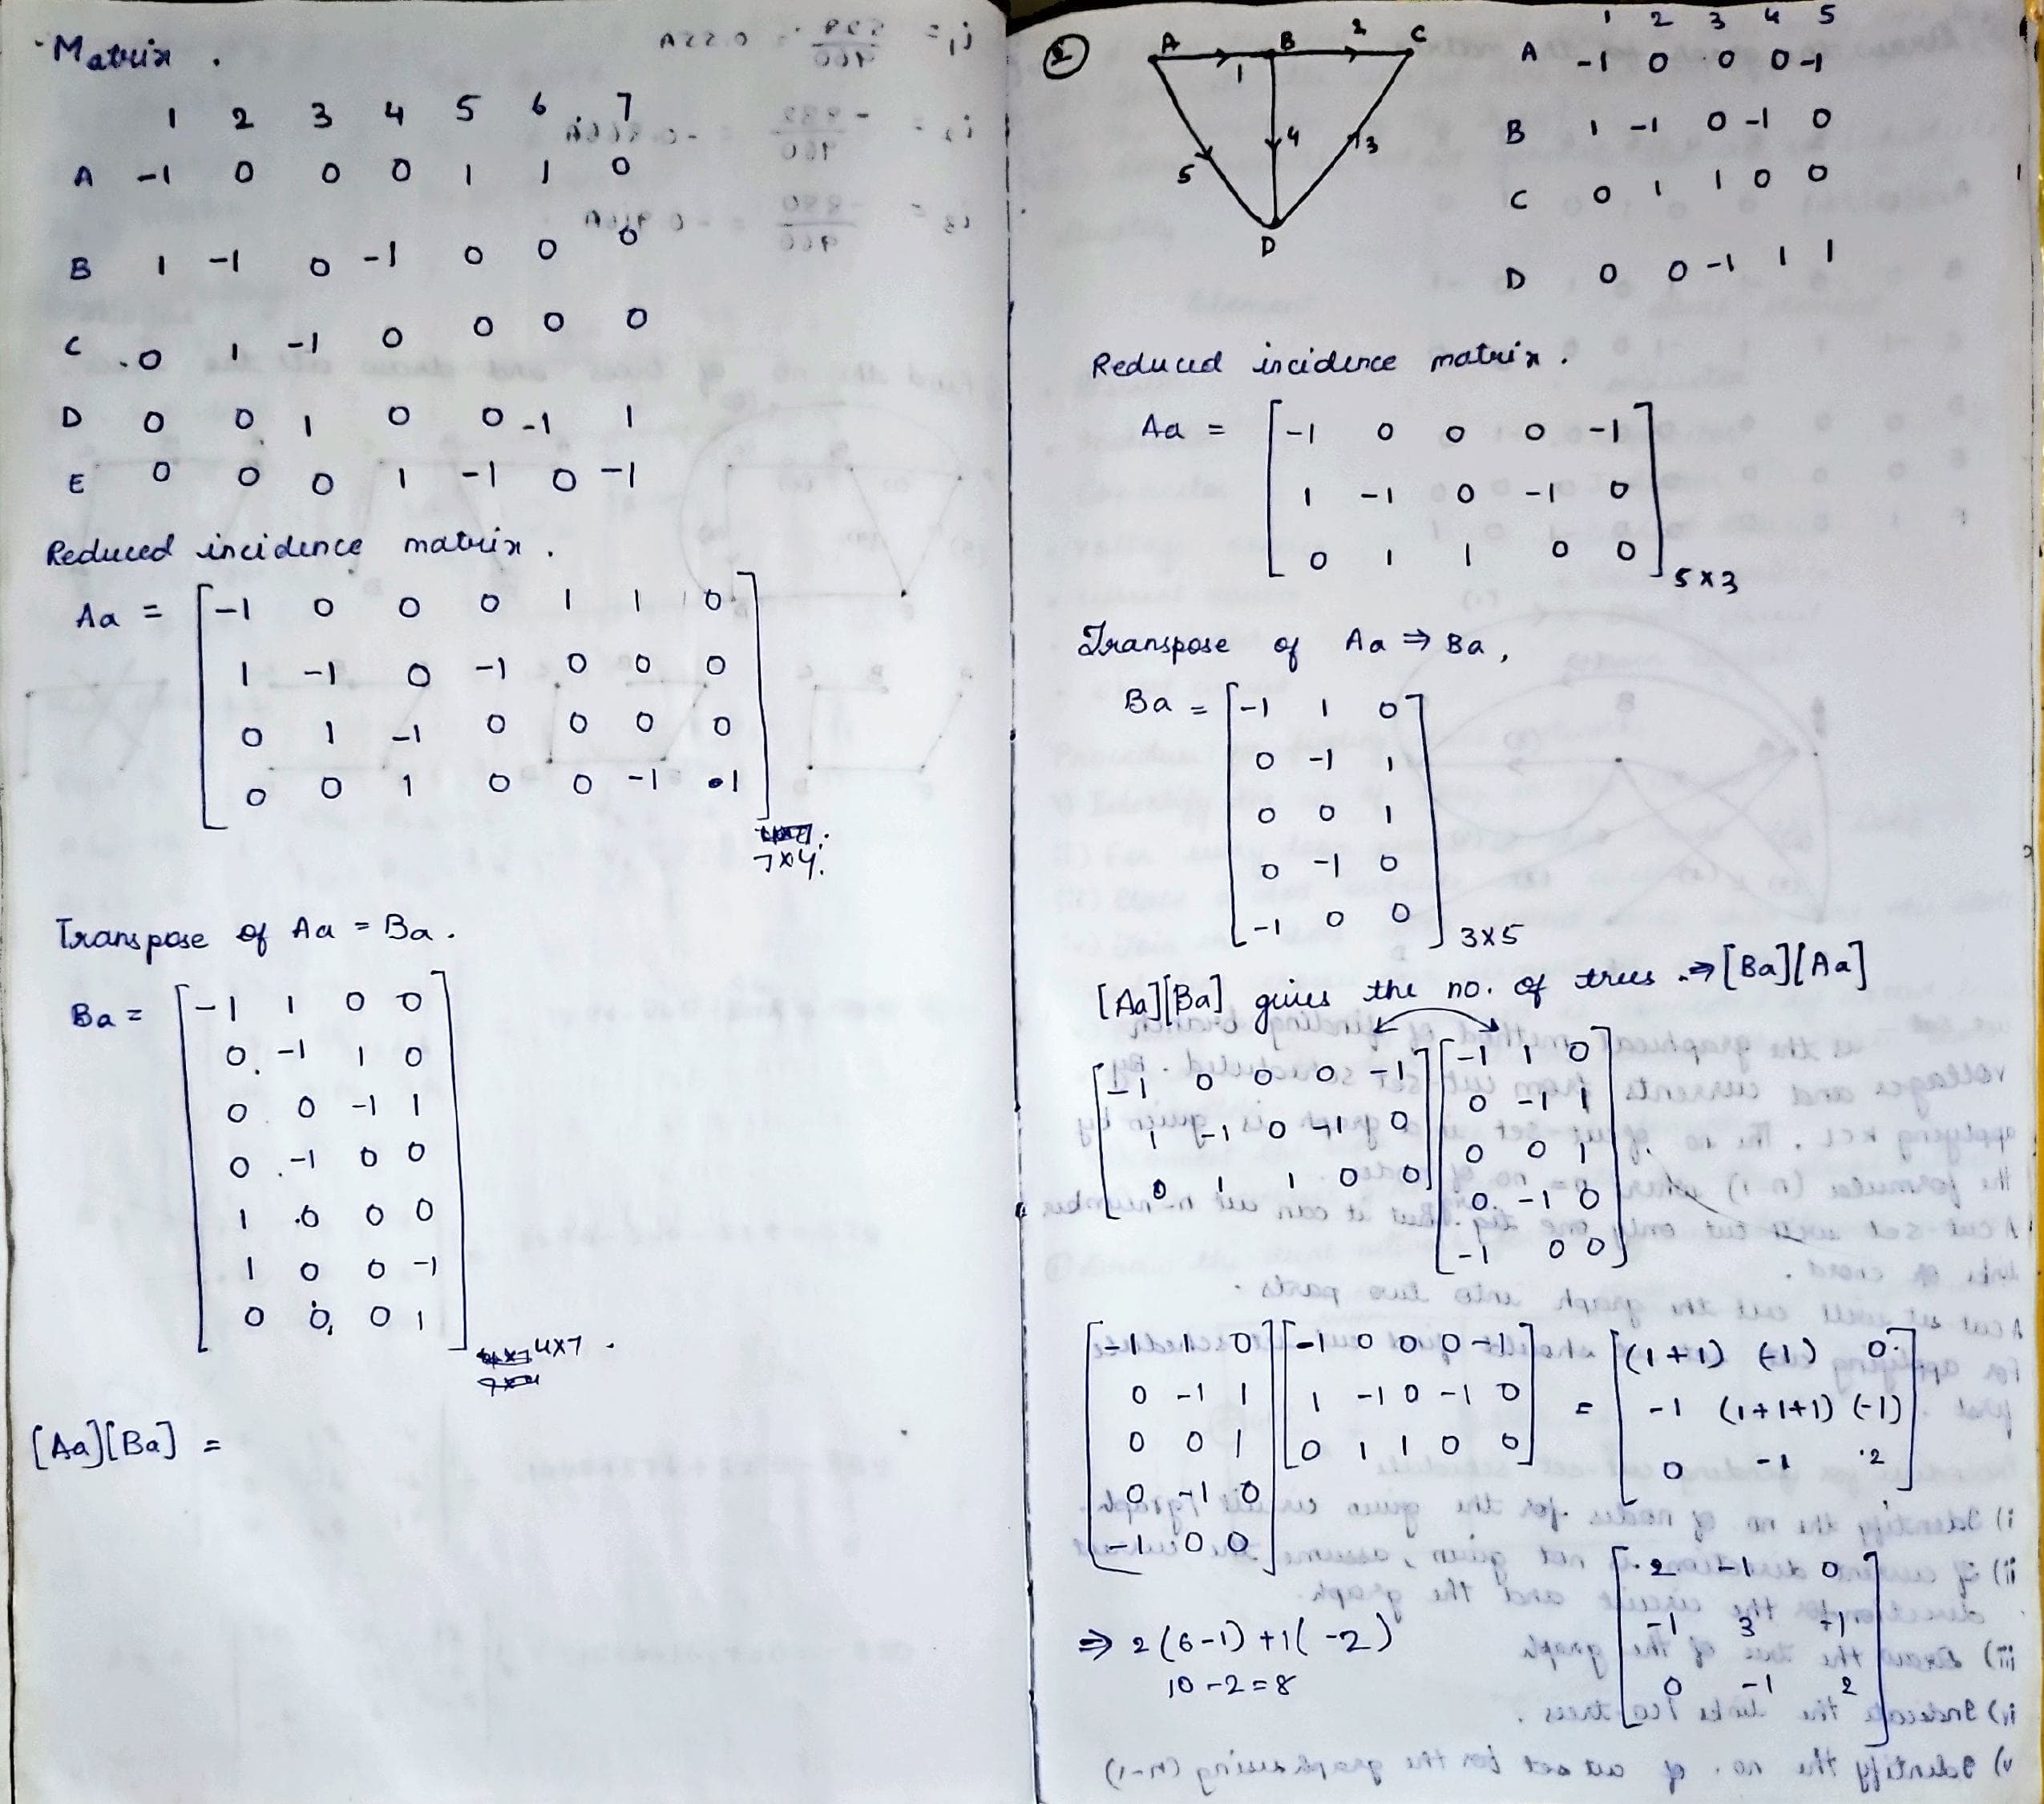 Matrix .
1 2 3 4 5 6 7
A -1 0 0 0 1 1 0
B 1 -1 0 -1 0 0 0
C 0 1 -1 0 0 0 0
D 0 0 1 0 0 -1 1
E 0 0 0 1 -1 0 -1
Reduced incidence matrix .
Aa = [-1 0 0 0 1 1 0
1 -1 0 -1 0 0 0
0 1 -1 0 0 0 0
0 0 1 0 0 -1 1]
7x4.
Transpose of Aa = Ba .
Ba = [-1 1 0 0
0 -1 1 0
0 0 -1 1
0 -1 0 0
1 0 0 0
1 0 0 -1
0 0 0 1]
4x7 .
[Aa][Ba] =
2
A B 2 C
1
4
3
5
D
1 2 3 4 5
A -1 0 0 0 -1
B 1 -1 0 -1 0
C 0 1 1 0 0
D 0 0 -1 1 1
Reduced incidence matrix .
Aa = [-1 0 0 0 -1
1 -1 0 -1 0
0 1 1 0 0]
5x3
Transpose of Aa ⇒ Ba ,
Ba = [-1 1 0
0 -1 1
0 0 1
0 -1 0
-1 0 0]
3x5
[Aa][Ba] gives the no. of trees . ⇒ [Ba][Aa]
[-1 0 0 0 -1] [-1 1 0
1 -1 0 -1 0 0 -1 1
0 1 1 0 0] 0 0 1
0 -1 0
-1 0 0]
[-1 1 0] [-1 0 0 0 -1] = [(1+1) (-1) 0
0 -1 1 1 -1 0 -1 0 -1 (1+1+1) (-1)
0 0 1 0 1 1 0 0 0 -1 2]
0 -1 0
-1 0 0]
[2 -1 0
-1 3 -1
0 -1 2]
⇒ 2(6-1) +1(-2)
10-2=8